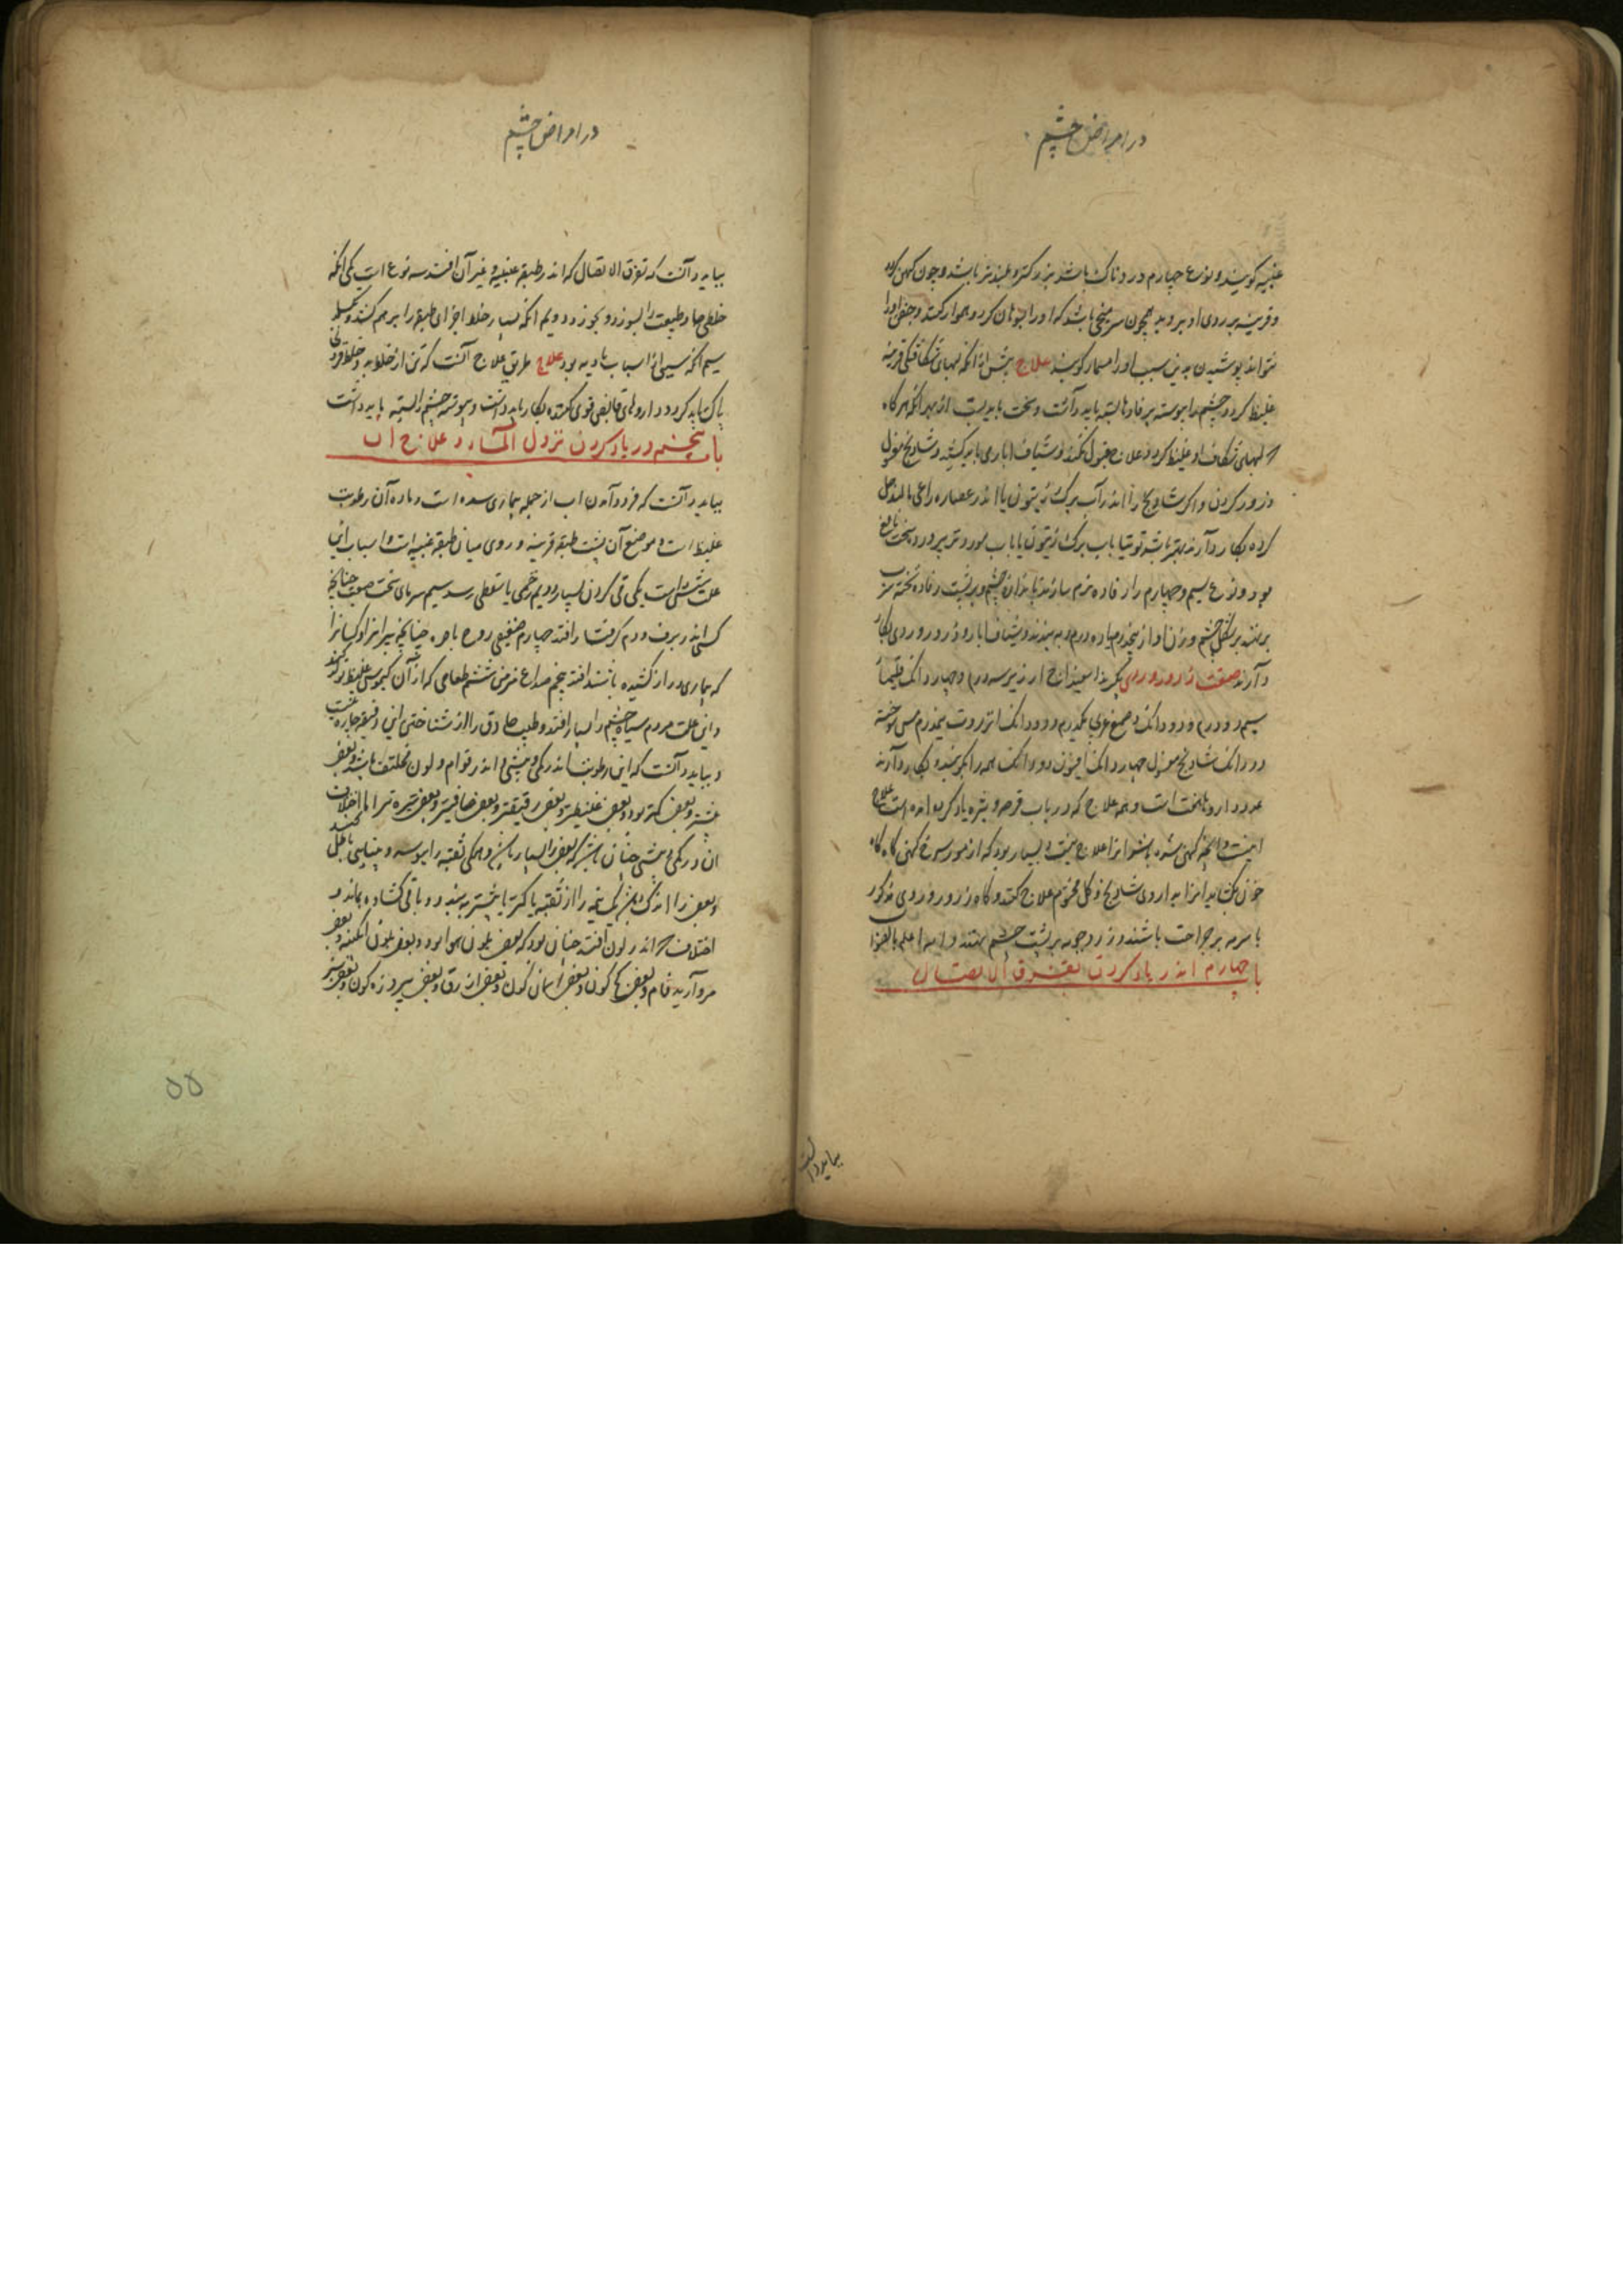 در امراض چشم
عنبیه گویند و نوع چهارم دردناک باشد بزرکتر و بلندتر باشد و چون کهن کردد
و قرنیه بر روی او بروید همچون سر میخی باشد که او را بسوهان کرد و هموار کنند و جفن او را
نتواند پوشیدن بدین سبب او را مسمار کویند علاج پیش از انکه لبهای شکافتکی قرنیه
غلیظ کردد چشم را پیوسته بر فادها بسته باید داشت و سخت باید بست از بهر انکه هرکاه
که لبهای شکاف او غلیظ کردد علاج قبول نکند و شیاف اباری باید کشید و شادنج مغسول
ذرور کردن و اکر شادنج را اندر آب برک زیتون یا اندر عصاره راعی بالند حل
کرده بکار دارند بهتر باشد توتیا باب برک زیتون یا باب مورد تر پرورد سخت نافع
بود و نوع سیم و چهارم را رفاده نرم سازند باندازه چشم و بر پشت رفاده تخته سرب
بر نهند بر شکل چشم و وزن او از پنج درم یا ده درم و به بندند و شیاف ابار و ذرور وردی بکار
دارند صفت ذرور وردی بکیرند اسفیداج ارزیز سه درم و چهار دانک قلیمیا
سیم دو درم و دو دانک و صمغ عربی یکدرم و دو دانک انزروت نیمدرم مس سوخته
دو دانک شادنج مغسول چهار دانک افیون دو دانک همه را بکوبند و بکار دارند
عدد داروها هفت است و همه علاج که در باب قرحه و بثره یاد کرده امده است علاج
اینست و انچه کهن شده باشد انرا علاج نیست و بسیار بود که از مورسرخ کهن کاه کاه
خون بکشاید انرا بداروی شادنج و کل مختوم علاج کنند و کاه ذرور وردی مذکور
با سرمه بر جراحت باشند و زردچوبه بر پشت چشم نهند و الله اعلم بالصواب
باب چهارم اندر یاد کردن تفرق الاتصال
بباید دانست
در امراض چشم
بباید دانست که تفرق الاتصال که اندر طبقه عنبیه و غیر آن افتد سه نوع است یکی انکه
خلطی حاد طبیعت را بسوزد و بجوزد دویم انکه بسیار خلط اجزای طبقه را بر هم کشد و بکسلد
سیم انکه سببی از اسباب بادیه بود علاج طریق علاج آنست که تن از خلط بد و خلط فزونی
پاک باید کرد و داروهای قابض قوی کننده بکار باید داشت و پیوسته چشم را بسته باید داشت
باب پنجم در یاد کردن نزول الماء و علاج آن
بباید دانست که فرود آمدن اب از جمله بیماری سده است و ماده آن رطوبت
غلیظ است و موضع آن پشت طبقه قرنیه و روی میان طبقه عنبیه است و اسباب این
علت شش است یکی قی کردن بسیار دویم زخمی یا سقطی رسد سیم سرمای سخت صعب چنانچه
کسی اندر برف و دم کرفتار افتد چهارم ضعیفی روح باصره چنانچه پیرانرا و کسانرا
که بیماری دراز کشیده باشند افتد پنجم صداع مزمن ششم طعامی که از آن کیموس غلیظ تولد کند
و این علت مردم سیاه چشم را بسیار افتد و طبیب حاذق را از شناختن این دقیقه چاره نیست
و بباید دانست که این رطوبت اندر کمی و بیشی و اندر قوام و لون مختلف باشد و بعضی
بیشتر و بعضی کمتر بود و بعضی غلیظتر و بعضی رقیقتر و بعضی صافیتر و بعضی تیره تر اما اختلاف
ان در کمی و بیشی چنان باشد که بعضی را بسیار باشد و همکی ثقبه را بپوسد و بینایی باطل کند
و بعضی را اندک باشد که نیمه را از ثقبه یا کمتر یا بیشتر به بندد و باقی کشاده بماند و
اختلاف که اندر لون افتد چنان بود که بعضی بلون هوا بود و بعضی بلون ابکینه و بعضی
مروارید فام و بعضی کاه کون و بعضی اسمان کون و بعضی ازرق و بعضی پیروزه کون و بعضی سبز
۵۵